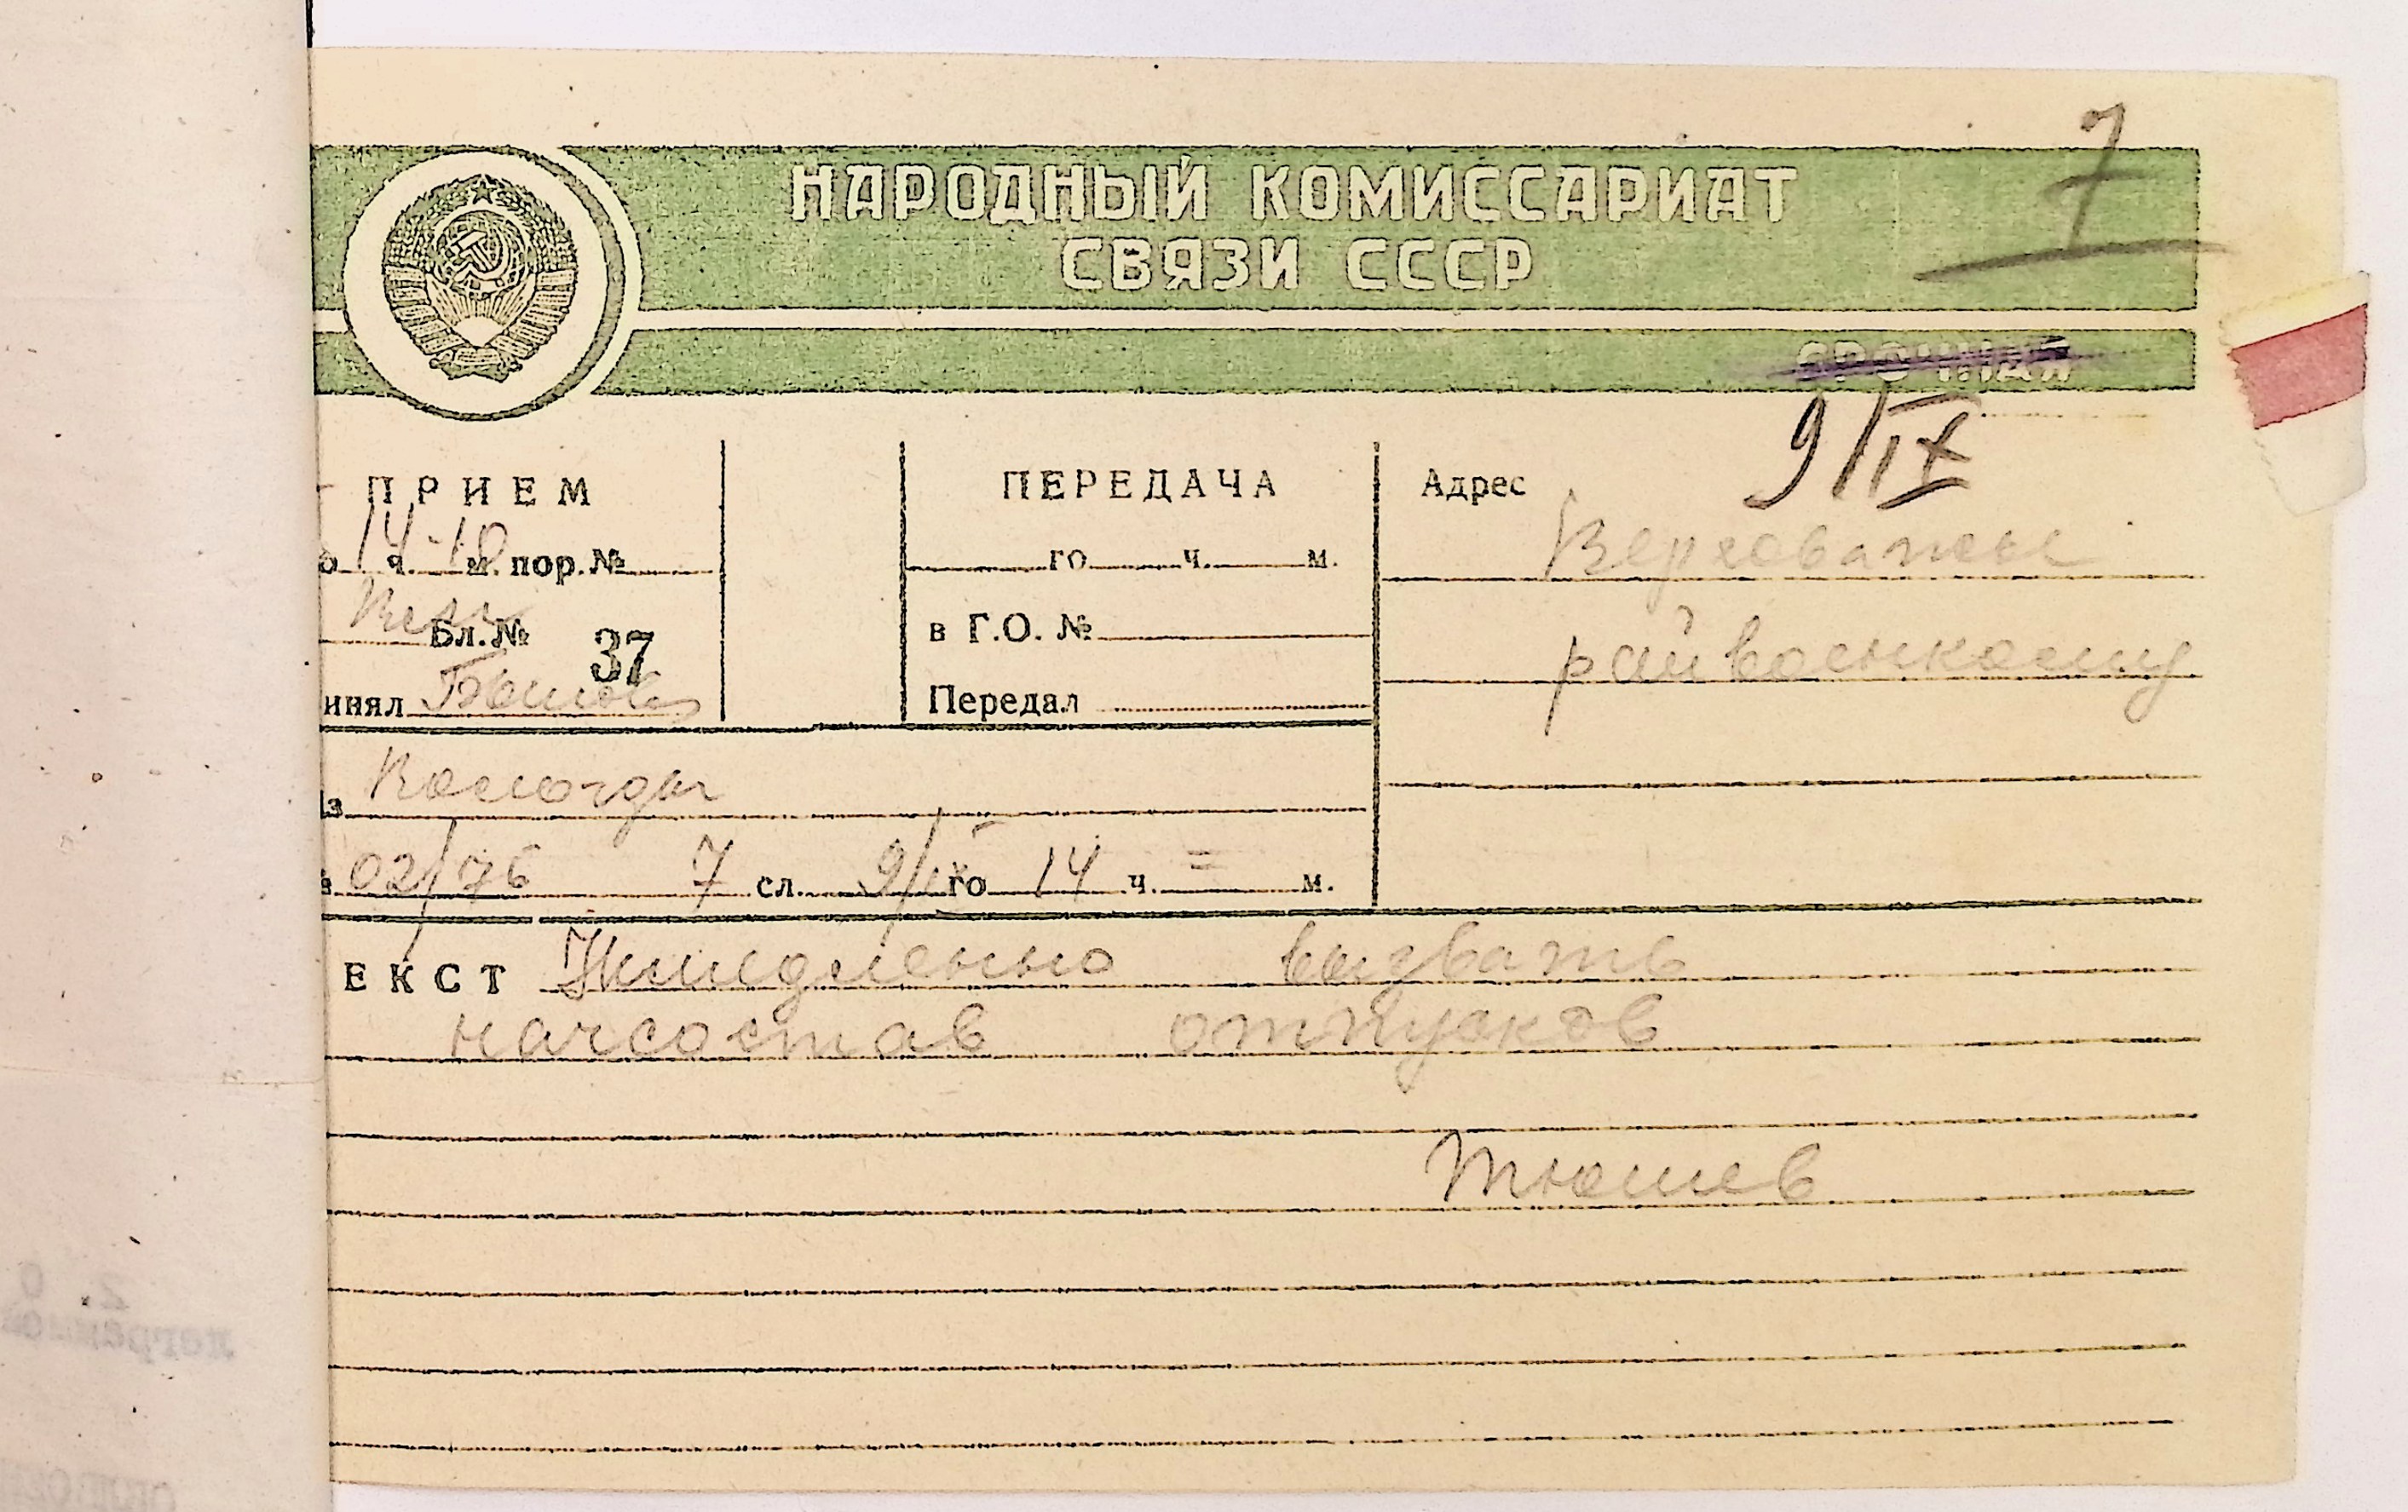 7
НАРОДНЫЙ КОМИССАРИАТ
СВЯЗИ СССР
СРОЧНАЯ
9/IX
ПРИЕМ
14-10
о ч. м. пор.№
Бл.№ 37
инял
ПЕРЕДАЧА
го ч. м.
в Г.О. №
Передал
Адрес
Верховажье
райвоенкому
з Вологды
02/76 7 сл. 9/IX го 14 ч. = м.
ЕКСТ Немедленно вызвать
начсостав отпусков
Тюшев